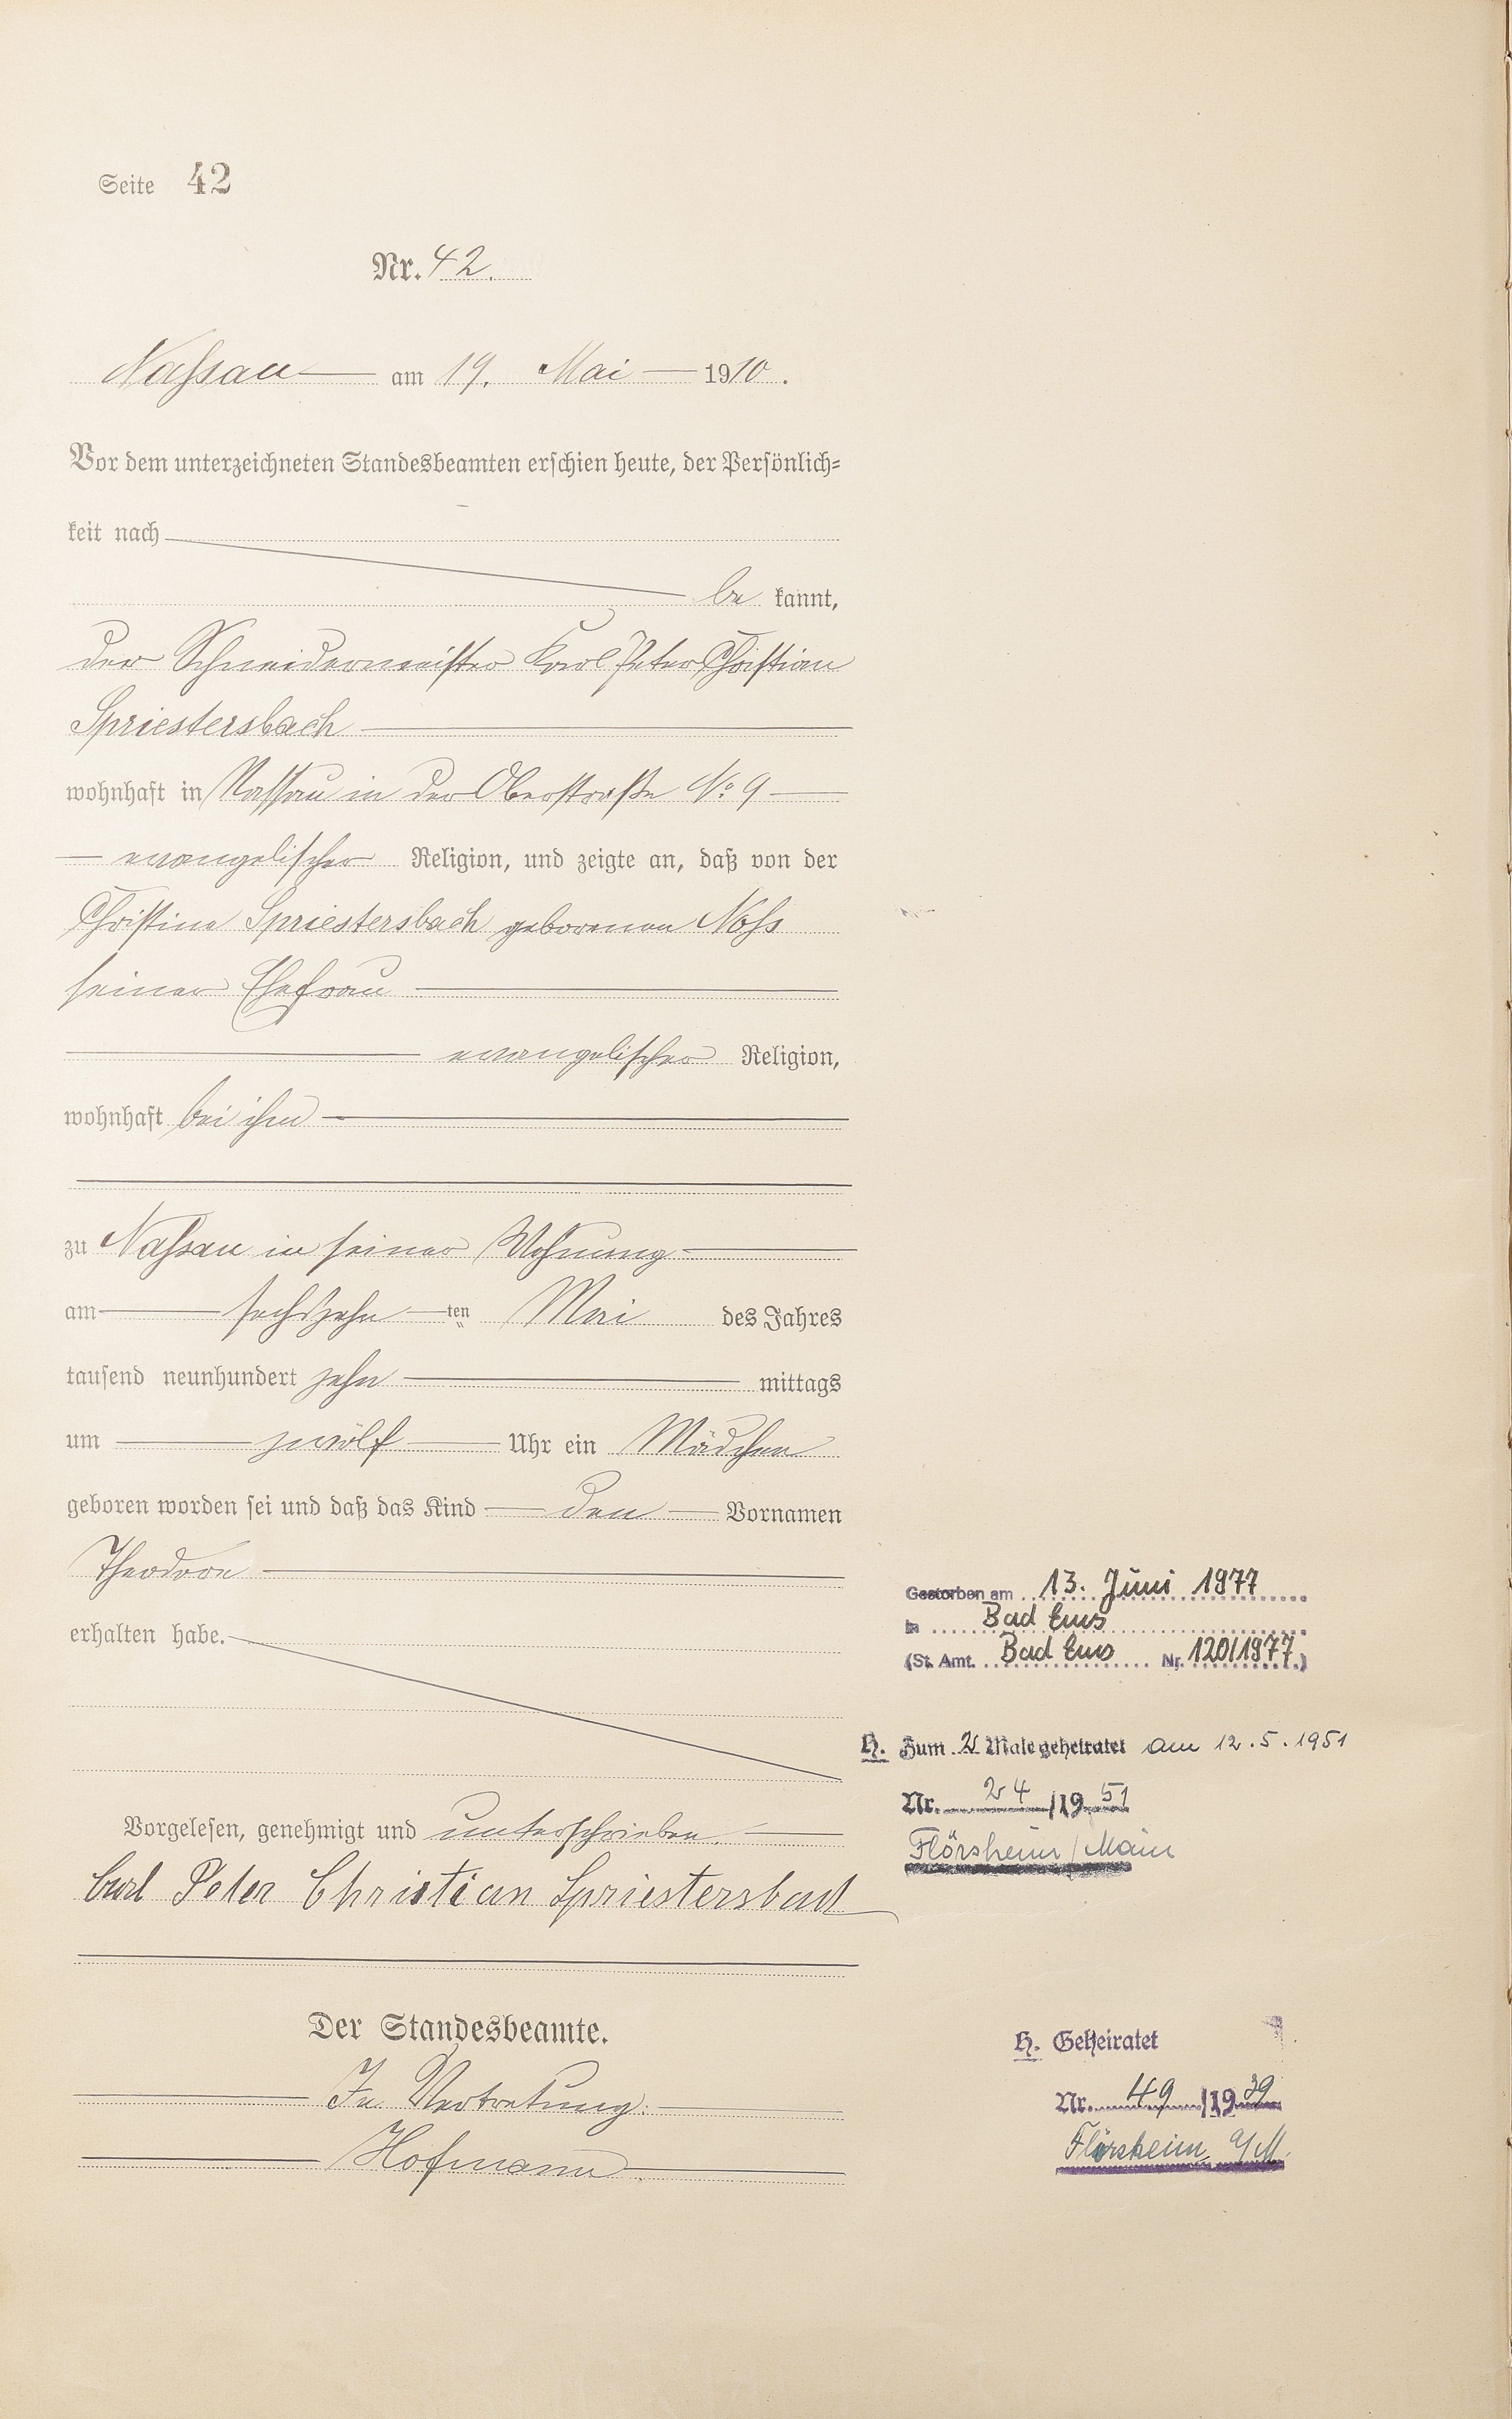 Seite 42
Nr. 42.
Nassau am 19. Mai 1910.
Vor dem unterzeichneten Standesbeamten erschien heute, der Persönlich-
keit nach
be kannt,
der Schneidermeister Karl Peter Christian
Spriestersbach
wohnhaft in Nassau in der Oberstraße No 9
evangelischer Religion, und zeigte an, daß von der
Christine Spriestersbach geborenen Noss
seiner Ehefrau
evangelischer Religion,
wohnhaft bei ihm
zu Nassau in seiner Wohnung
am sechszehn ten Mai des Jahres
tausend neunhundert zehn mittags
um zwölf Uhr ein Mädchen
geboren worden sei und daß das Kind den Vornamen
Theodore
erhalten habe.
Vorgelesen, genehmigt und unterschrieben.
Carl Peter Christian Spriestersbach
Der Standesbeamte.
In Vertretung:
Hofmann.
Gestorben am 13. Juni 1977
in Bad Ems
(St. Amt. Bad Ems Nr. 120/1977)
H. Zum 2 Male geheiratet am 12.5.1951
Nr. 24 /19 51
Flörsheim/Main
H. Geheiratet
Nr. 49 /19 39
Flörsheim a/M.